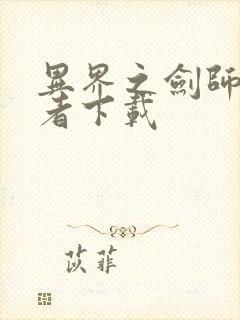 異界之劍師
者下載
苡菲